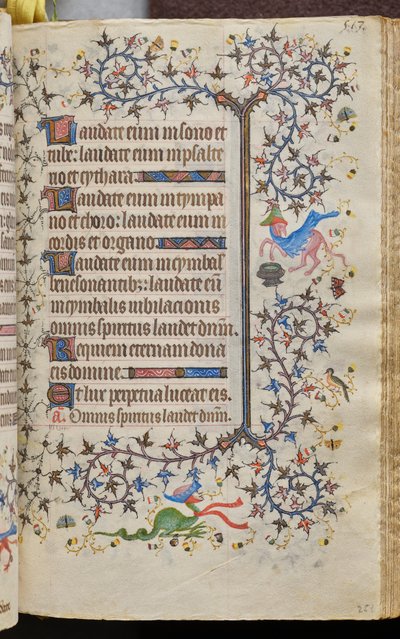 567.
Laudate eum in sono et
tube: laudate eum in psalte
rio et cythara
Laudate eum in tympa
no et choro: laudate eum in
cordis et organo
Laudate eum in cymbal'
benesonantib;: laudate eū
in cymbalis iubilacionis
omnis spiritus laudet dnm̄.
Requiem eternam dona
eis domine
Et lux perpetua luceat eis.
añ
Omnis spiritus laudet dnm̄.